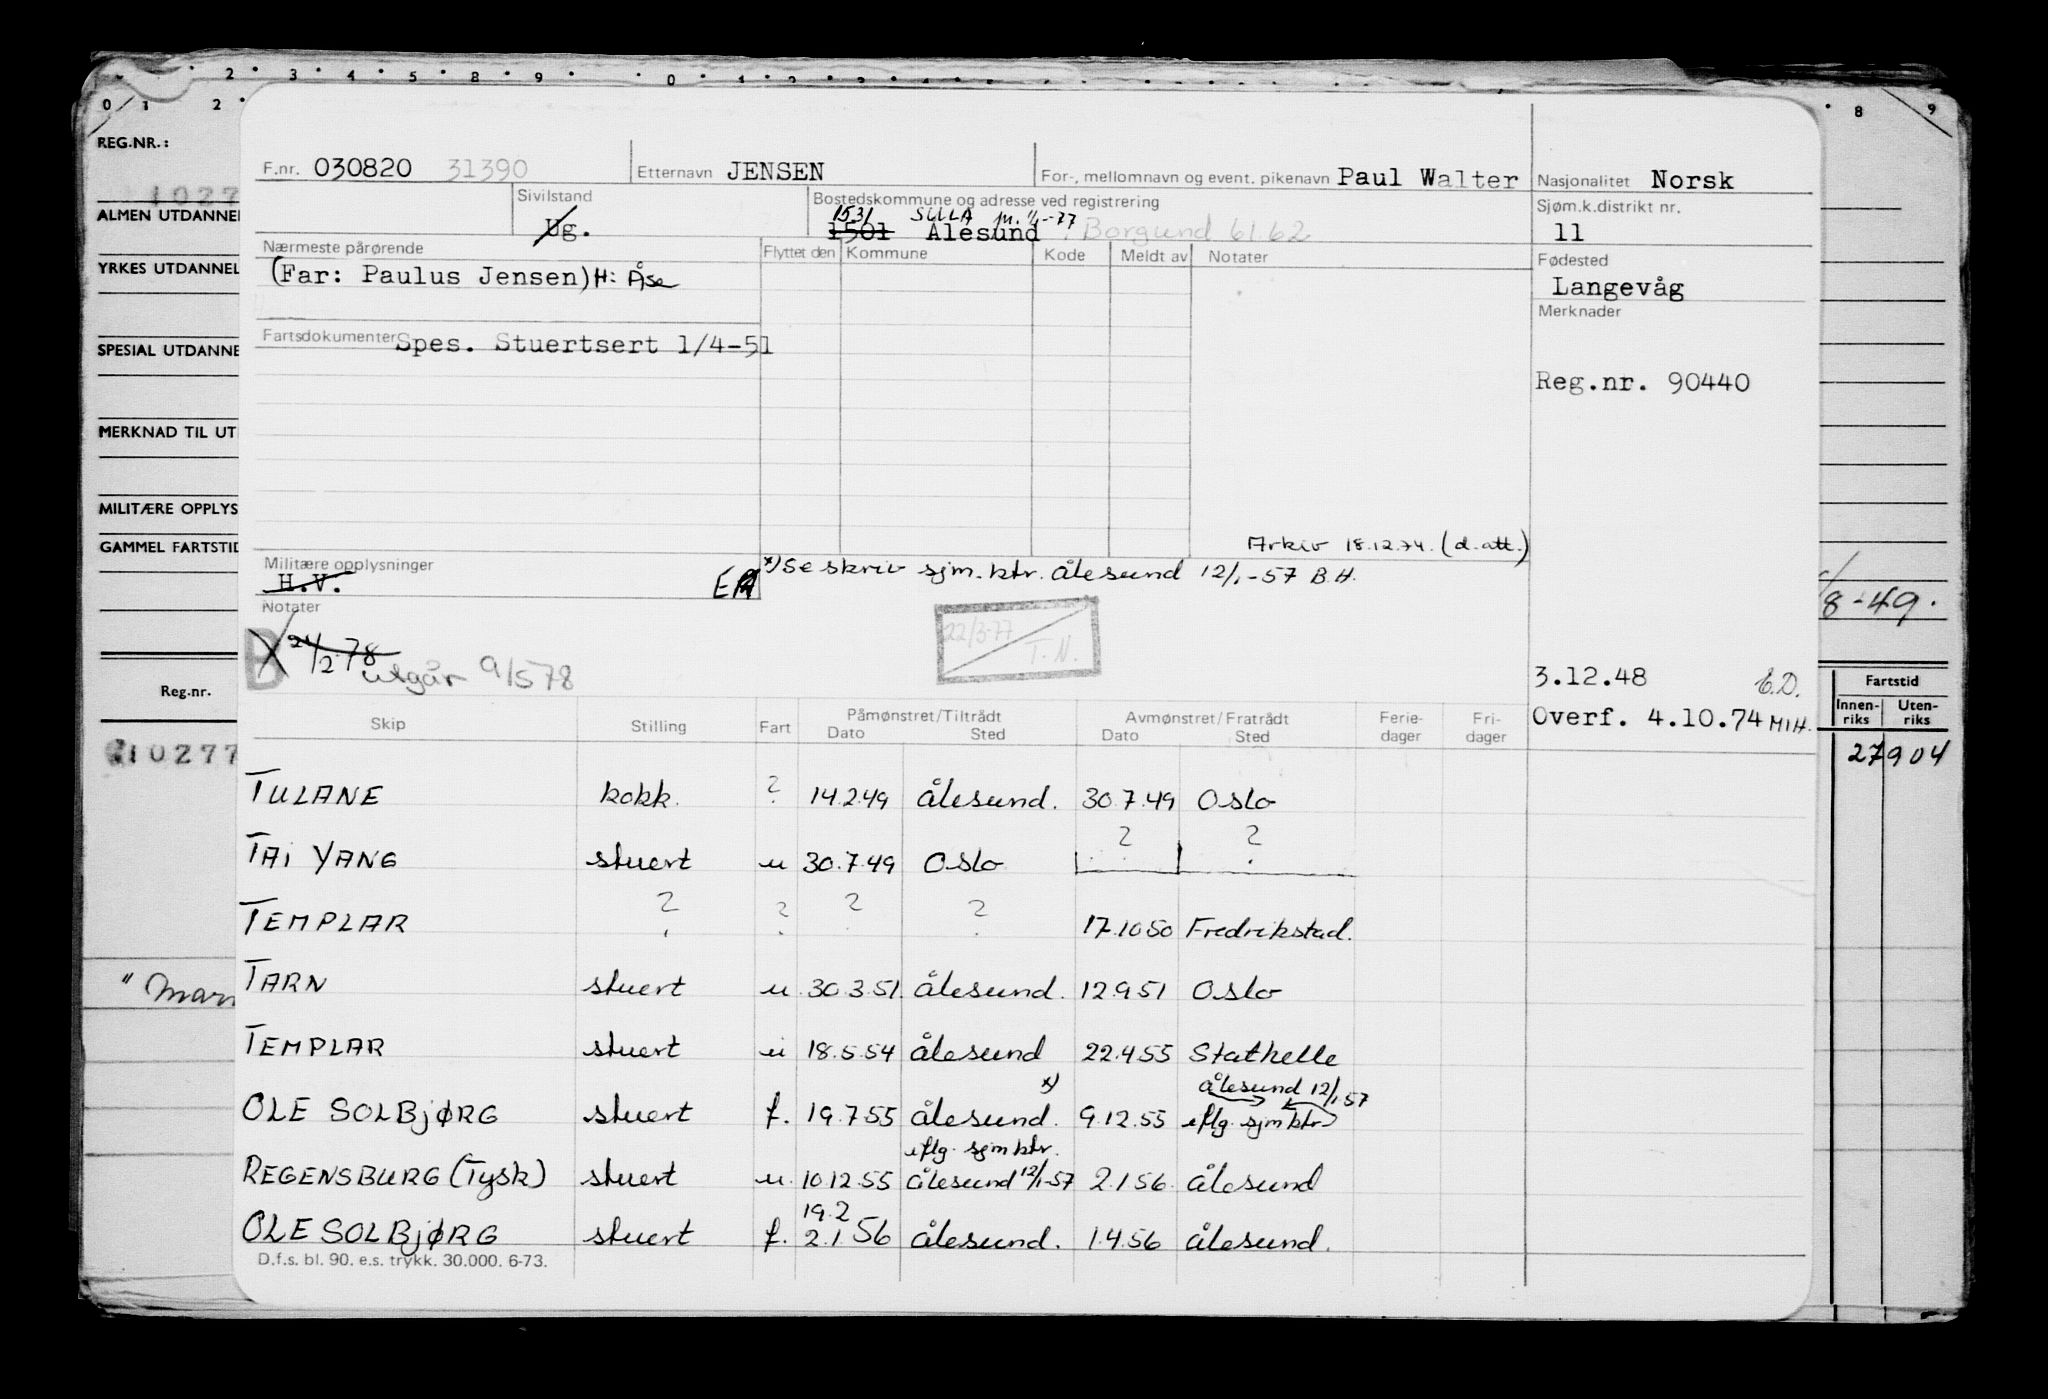 2 3 4 5 8 9 0 1 2 3 4
0 1 2 8 9
REG.NR.:
1027
ALMEN UTDANNEL
YRKES UTDANNEL
SPESIAL UTDANNE
MERKNAD TIL UT
MILITÆRE OPPLYS
GAMMEL FARTSTID
8-49.
Reg.nr.
10277
" Mar
Fartstid
Innen- Uten-
riks riks
27904
F.nr. 030820 31390 Etternavn JENSEN For-, mellomnavn og event. pikenavn Paul Walter Nasjonalitet Norsk
Sivilstand Bostedskommune og adresse ved registrering Sjøm.k.distrikt nr.
1531 SULA
Ug. 1501 Ålesund Borgund 61.62 11
Nærmeste pårørende Flyttet den Kommune Kode Meldt av Notater Fødested
(Far: Paulus Jensen) H: Åse Langevåg
Merknader
Fartsdokumenter Spes. Stuertsert 1/4-51
Reg.nr. 90440
Arkiv 18.12.74. (d.att.)
Militære opplysninger x) Se skriv sjm.ktr. Ålesund 12/1-57 B.H.
H.V.
Notater
B 24/2-78 utgår 9/578
22/3-77
T.N.
3.12.48 E.D.
Overf. 4.10.74 MIH.
Skip Stilling Fart Påmønstret/Tiltrådt Avmønstret/Fratrådt Ferie- Fri-
Dato Sted Dato Sted dager dager
TULANE kokk. ? 14.2.49 Ålesund. 30.7.49 Oslo
TAI YANG stuert u 30.7.49 Oslo ? ?
TEMPLAR ? ? ? ? 17.10 50 Fredrikstad.
TARN stuert u. 30.3.51. Ålesund. 12.9 51 Oslo
TEMPLAR stuert u 18.5.54 Ålesund 22.4.55 Stathelle
x) Ålesund 12/1-57
OLE SOLBJØRG stuert f. 19.7 55 Ålesund. 9.12.55 iflg. sjm ktr
iflg. sjm ktr.
REGENSBURG (Tysk) stuert u. 10.12.55 Ålesund 12/1-57 2.1 56. Ålesund
19.2
OLE SOLBJØRG stuert f. 2.1 56 Ålesund. 1.4.56 Ålesund.
D.f.s. bl. 90. e.s. trykk. 30.000. 6-73.